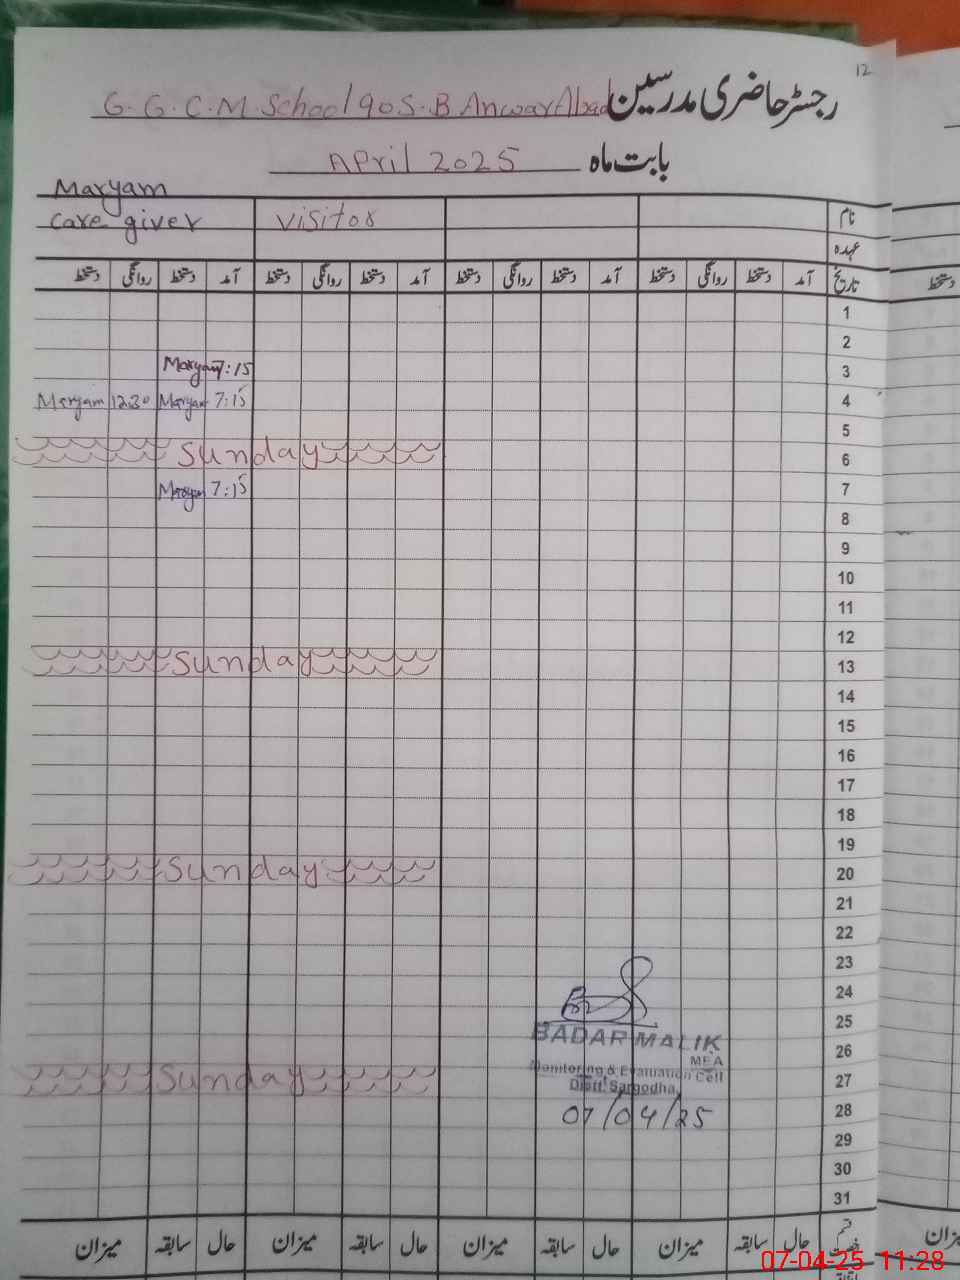 12
G.G.C.M.School 90 S.B Anwar Abad رجسٹر حاضری مدرسین
April 2025 بابت ماہ
Maryam
Care giver visitor نام
عہدہ
تاریخ آمد دستخط روانگی دستخط آمد دستخط روانگی دستخط آمد دستخط روانگی دستخط آمد دستخط روانگی دستخط
دستخط
1
2
Maryam 7:15 3
Maryam 12:30 Maryam 7:15 4
5
Sunday 6
Maryam 7:15 7
8
9
10
11
12
Sunday 13
14
15
16
17
18
19
Sunday 20
21
22
23
24
25
BADAR MALIK 26
MEA
Monitoring & Evaluation Cell
Sunday Distt. Sargodha 27
07/04/25 28
29
30
31
حال سابقہ میزان حال سابقہ میزان حال سابقہ میزان حال سابقہ میزان
07-04-25 11:28